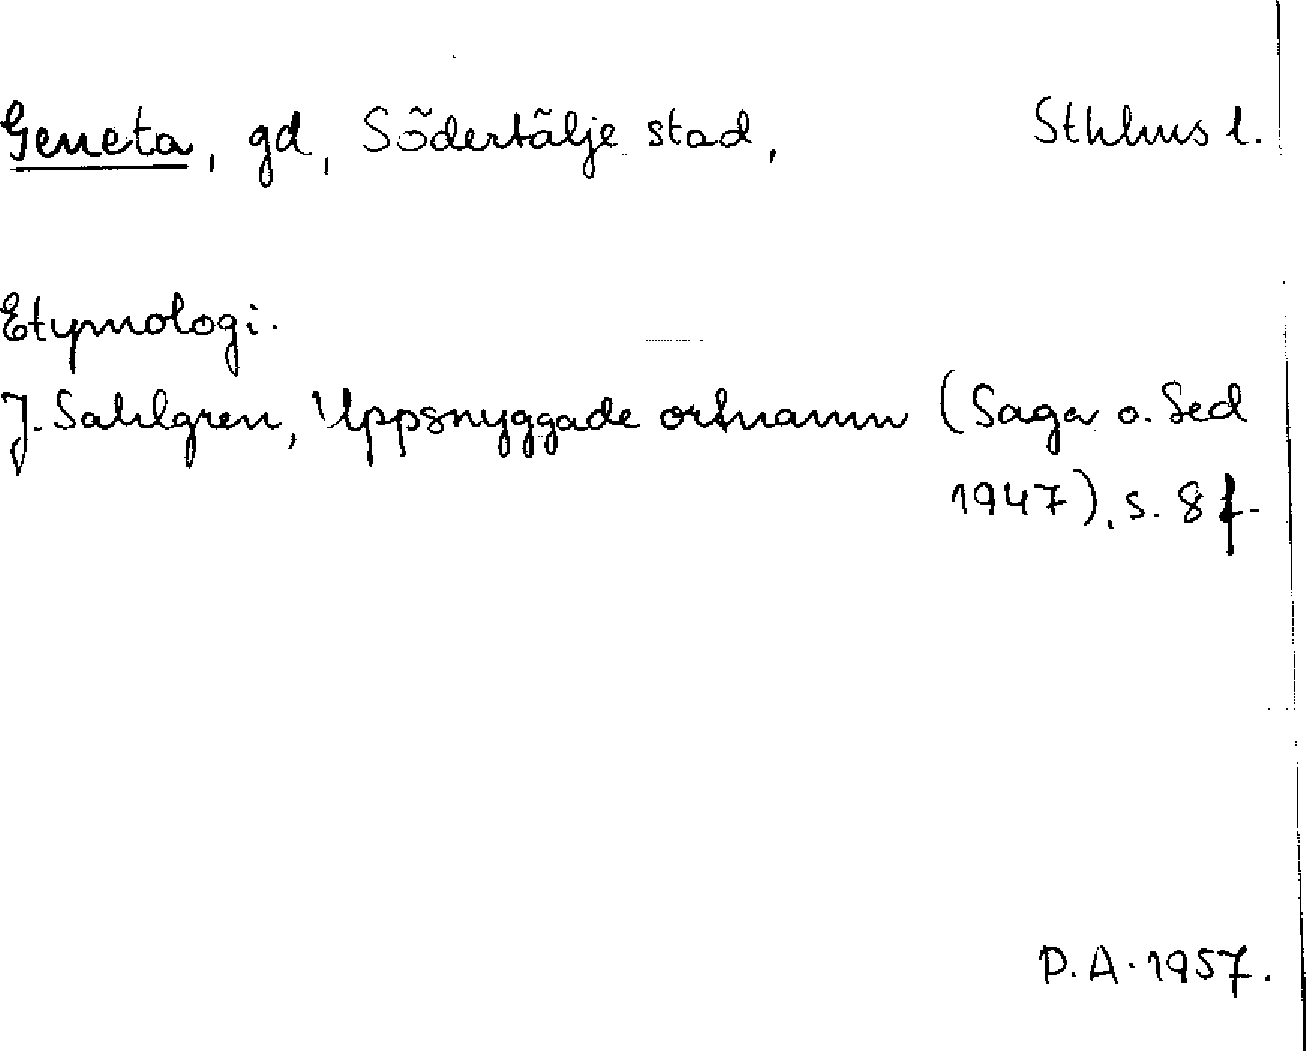 Geneta, gd, Södertälje stad, Sthlms l.
Etymologi.
J. Sahlgren, Uppsnyggade ortnamn (Saga o. Sed
1947), s. 8 f.
P.A. 1957.